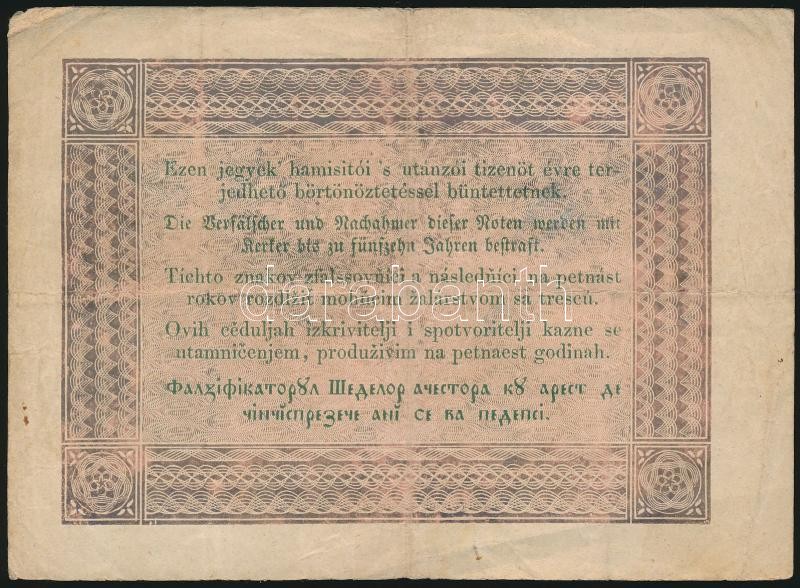 Ezen jegyek' hamisitói 's utánzói tizenöt évre ter-
jedhető börtönöztetéssel büntettetnek.
Die Verfälscher und Nachahmer dieser Noten werden mit
Kerker bis zu fünfzehn Jahren bestraft.
Tíchto znakov zfalssovníci a následníci na petnást
rokov rozdlžit mohúcim žalárstvom sa trescú.
Ovih céduljah izkrivitelji i spotvoritelji kazne se
utamničenjem, produživim na petnaest godinah.
Фалзіфікаторꙋл Шеделор ачестора кꙋ арест де
чінчіспрезече ані се ва педепсі.
darabanth